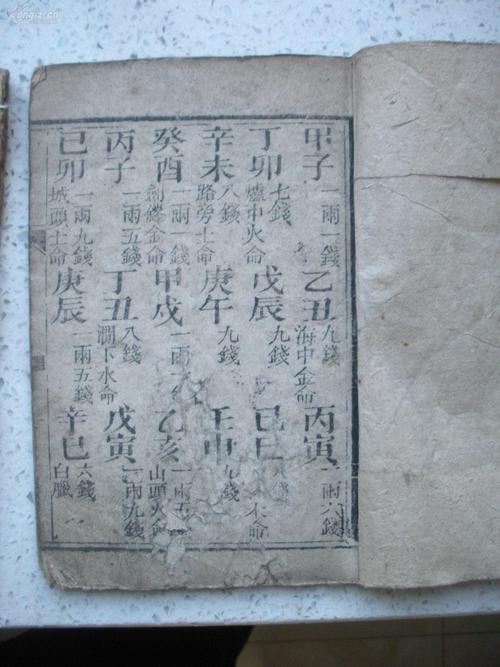 甲子 一兩一錢 乙丑 九錢 海中金命 丙寅 一兩六錢
丁卯 七錢 爐中火命 戊辰 九錢 己巳 錢 木命
辛未 八錢 路旁土命 庚午 九錢 壬申 九錢
癸酉 一兩一錢 劍鋒金命 甲戌 一兩 錢 乙亥 一兩五 山頭火命
丙子 一兩五錢 丁丑 八錢 澗下水命 戊寅 一兩九錢
己卯 一兩九錢 城頭土命 庚辰 一兩五錢 辛巳 六錢 白臘